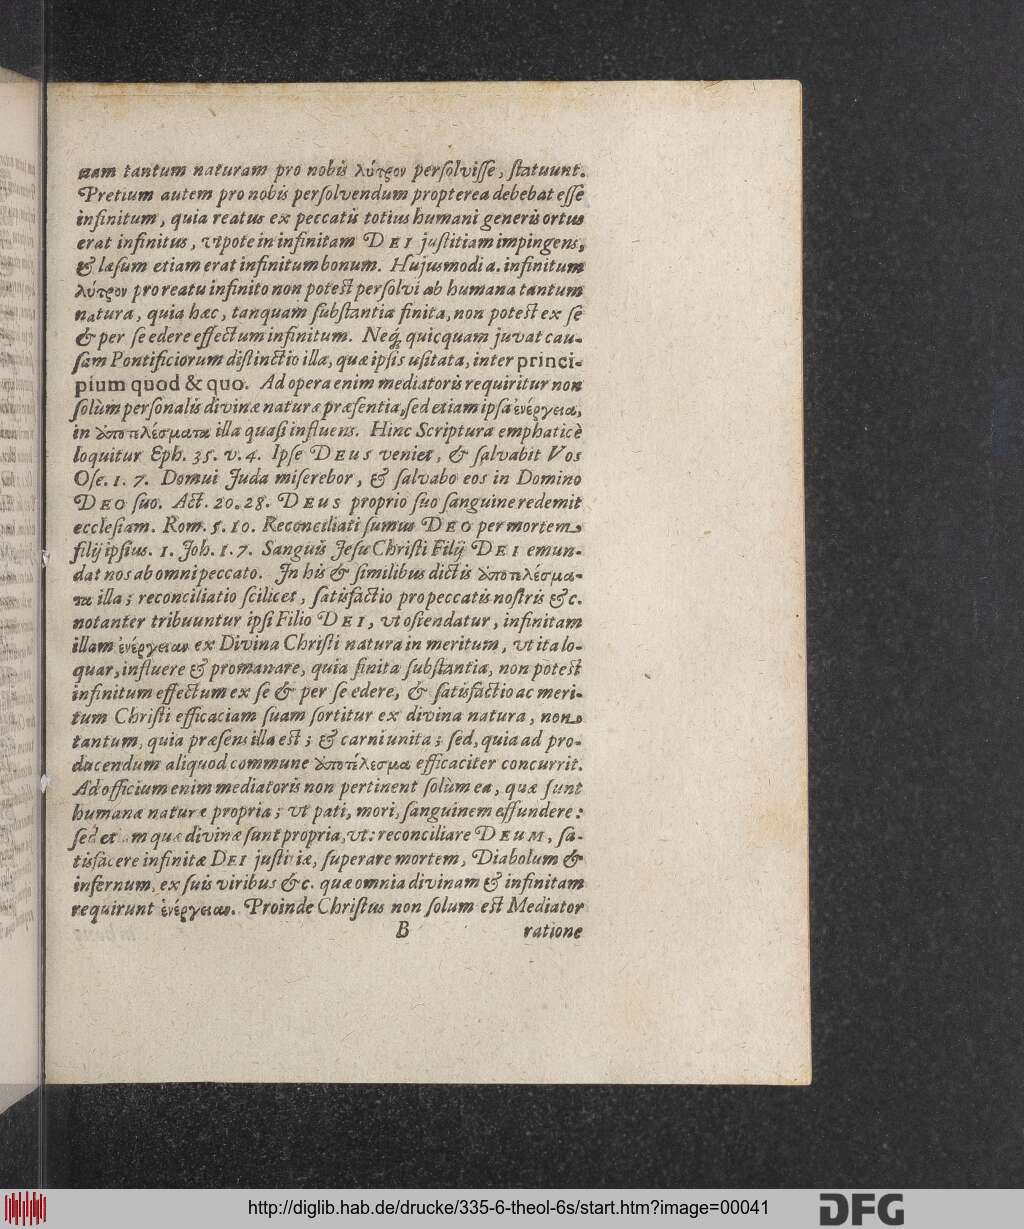 nam tantum naturam pro nobis λύτρον persolvisse, statuunt.
Pretium autem pro nobis persolvendum propterea debebat esse
infinitum, quia reatus ex peccatis totius humani generis ortus
erat infinitus, utpote in infinitam DEI justitiam impingens,
& læsum etiam erat infinitum bonum. Hujusmodi a. infinitum
λύτρον pro reatu infinito non potest persolvi ab humana tantum
natura, quia hæc, tanquam substantia finita, non potest ex se
& per se edere effectum infinitum. Neq; quicquam juvat cau-
sam Pontificiorum distinctio illa, quæ ipsis usitata, inter princi-
pium quod & quo. Ad opera enim mediatoris requiritur non
solùm personalis divinæ naturæ præsentia, sed etiam ipsa ἐνέργεια,
in ἀποτελέσματα illa quasi influens. Hinc Scriptura emphaticè
loquitur Eph. 35. v. 4. Ipse DEUS veniet, & salvabit Vos
Ose. 1. 7. Domui Juda miserebor, & salvabo eos in Domino
DEO suo. Act. 20. 28. DEUS proprio suo sanguine redemit
ecclesiam. Rom. 5. 10. Reconciliati sumus DEO per mortem
filij ipsius. 1. Joh. 1. 7. Sanguis Jesu Christi Filij DEI emun-
dat nos ab omni peccato. In his & similibus dictis ἀποτελέσμα-
τα illa; reconciliatio scilicet, satisfactio pro peccatis nostris &c.
notanter tribuuntur ipsi Filio DEI, ut ostendatur, infinitam
illam ἐνέργειαν ex Divina Christi natura in meritum, ut ita lo-
quar, influere & promanare, quia finita substantia, non potest
infinitum effectum ex se & per se edere, & satisfactio ac meri-
tum Christi efficaciam suam sortitur ex divina natura, non
tantum, quia præsens illa est; & carni unita; sed, quia ad pro-
ducendum aliquod commune ἀποτέλεσμα efficaciter concurrit.
Ad officium enim mediatoris non pertinent solùm ea, quæ sunt
humanæ naturæ propria; ut pati, mori, sanguinem effundere:
sed etiam quæ divinæ sunt propria, ut: reconciliare DEUM, sa-
tisfacere infinitæ DEI justitiæ, superare mortem, Diabolum &
infernum, ex suis viribus &c. quæ omnia divinam & infinitam
requirunt ἐνέργειαν. Proinde Christus non solum est Mediator
B ratione
http://diglib.hab.de/drucke/335-6-theol-6s/start.htm?image=00041
DFG